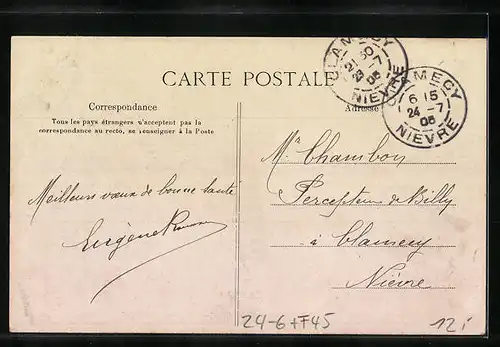 CLAMECY
21 50
23 - 7
05
NIEVRE
CLAMECY
6 15
24 - 7
05
NIEVRE
CARTE POSTALE
Correspondance
Tous les pays étrangers n'acceptent pas la
correspondance au recto, se renseigner à la Poste
Adresse
Meilleurs vœux de bonne santé
Eugène
Mr Chambon
Percepteur de Billy
à Clamecy
Nièvre
24-6+F45
12,-